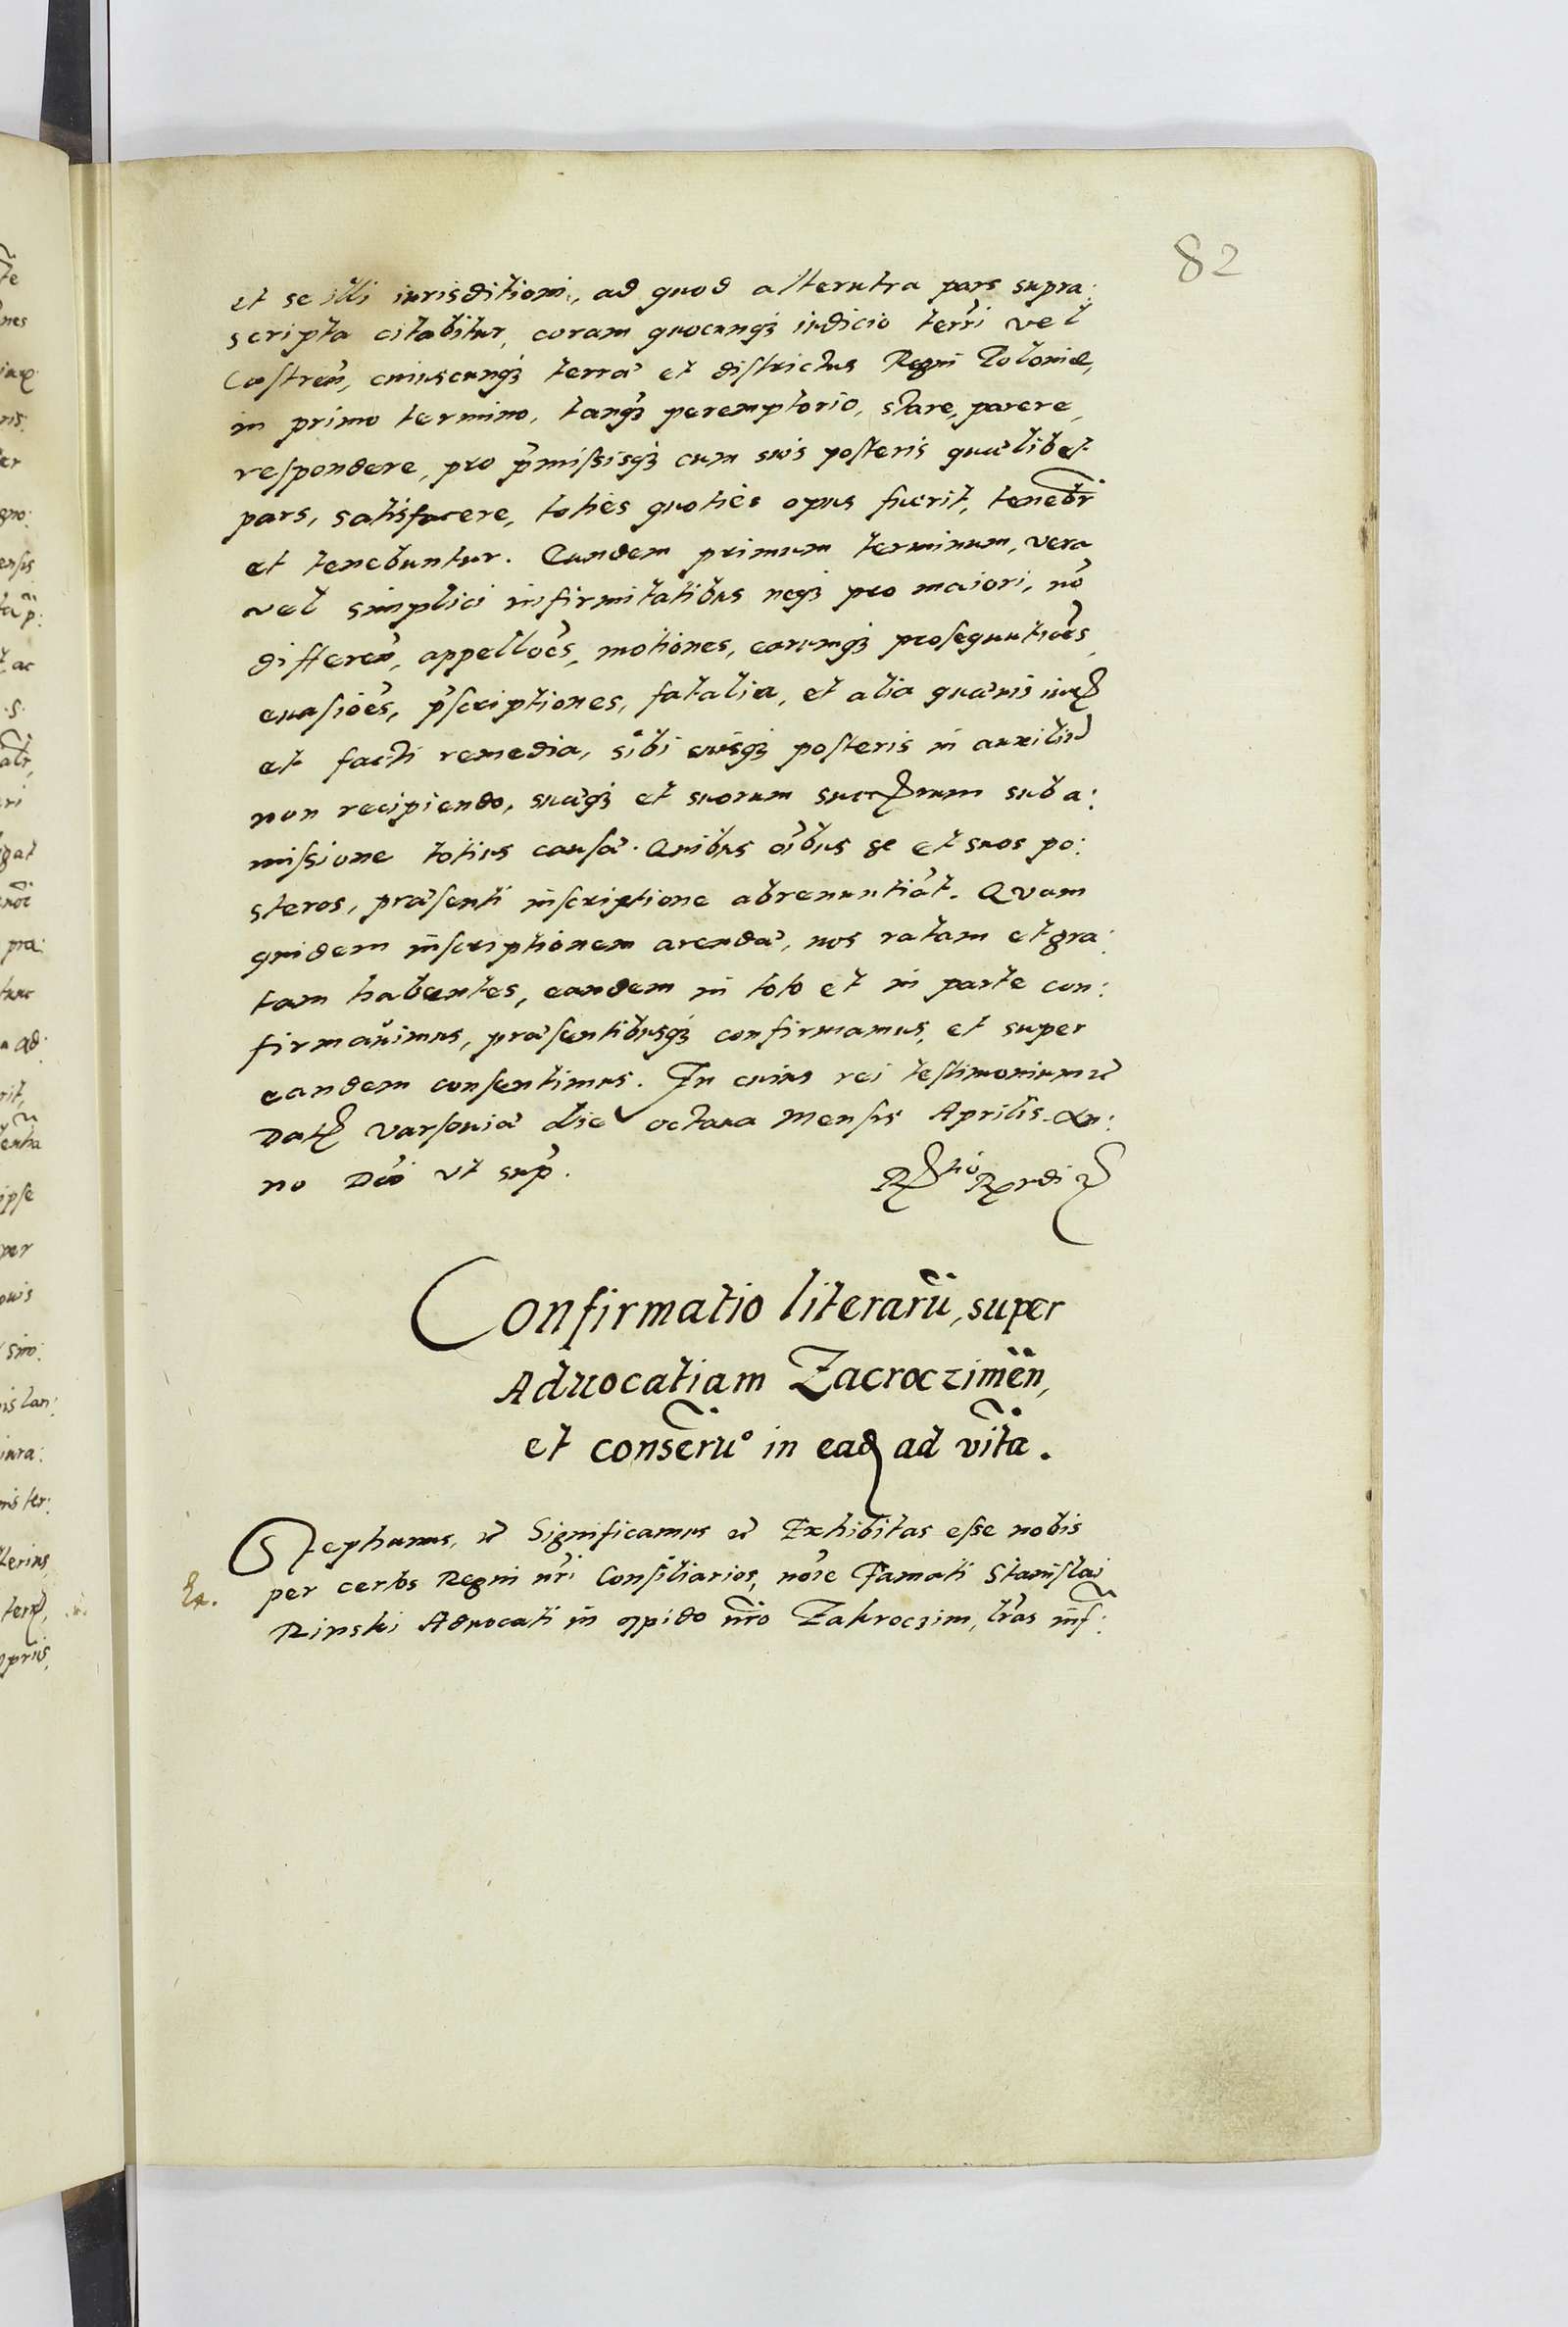 82
et se illi iurisditioni, ad quod alterutra pars supra:
scripta citabitur, coram quocunqȝ iudicio terrī vel
Castreñ, cuiuscunqȝ terræ et districtus Regni Poloniæ,
in primo termino, tanqȝ peremptorio, stare, parere,
respondere, pro p̄missisqȝ cum suis posteris quælibet
pars, satisfacere, toties quoties opus fuerit, tenebr̄
et tenebuntur. Eundem primum terminum, vera
vel simplici infirmitatibus neqȝ pro maiori, nō
differeñ, appelloēs, motiones, earumqȝ prosequutioēs,
euasioēs, p̄scriptiones, fatalia, et alia quævis
et facti remedia, sibi suisqȝ posteris in auxiliū
non recipiendo, suaqȝ et suorum sub a:
missione totius causæ. Quibus oībus se et suos po:
steros, præsenti inscriptione abrenuntiāt. Quam
quidem inscriptionem arendæ, nos ratam et gra:
tam habentes, eandem in toto et in parte con:
firmauimus, præsentibusqȝ confirmamus, et super
eandem consentimus. In cuius rei testimonium
Dat Varsouiæ die octaua Mensis Aprilis An:
no Dn̄i vt sup̄.
Confirmatio literarū, super
Aduocatiam Zacroczimēn,
et conseru° in ead ad vitā.
Stephanus, Significamus Exhibitas esse nobis
per certos Regni nr̄i Consiliarios, noīe Famati Stanislai
Rinski Aduocati in oppido nr̄o Zakroczim, lr̄as inf: